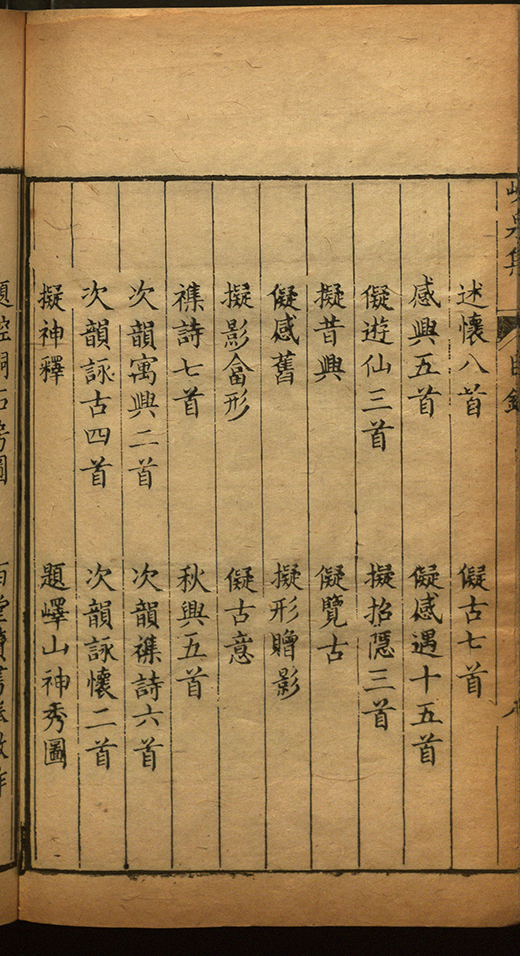 述懷八首 儗古七首
感興五首 儗感遇十五首
儗遊仙三首 擬招隱三首
擬昔興 儗覽古
儗感舊 擬形贈影
擬影畣形 儗古意
襍詩七首 秋興五首
次韻寓興二首 次韻襍詩六首
次韻詠古四首 次韻詠懷二首
擬神釋 題嶧山神秀圖